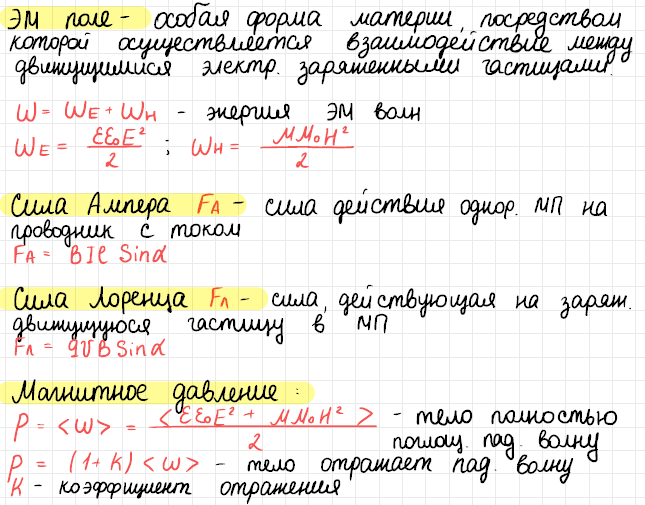 ЭМ поле - особая форма материи, посредством
которой осуществляется взаимодействие между
движущимися электр. заряженными частицами.
W = WE + WH - энергия ЭМ волн
WE = εε₀E²/2 ; WH = μμ₀H²/2
Сила Ампера FA - сила действия однор. МП на
проводник с током
FA = BIl Sinα
Сила Лоренца Fл - сила, действующая на заряж.
движущуюся частицу в МП
Fл = qVB Sinα
Магнитное давление:
P = <w> = <εε₀E² + μμ₀H²>/2 - тело полностью
поглощ. пад. волну
P = (1+K) <w> - тело отражает пад. волну
K - коэффициент отражения